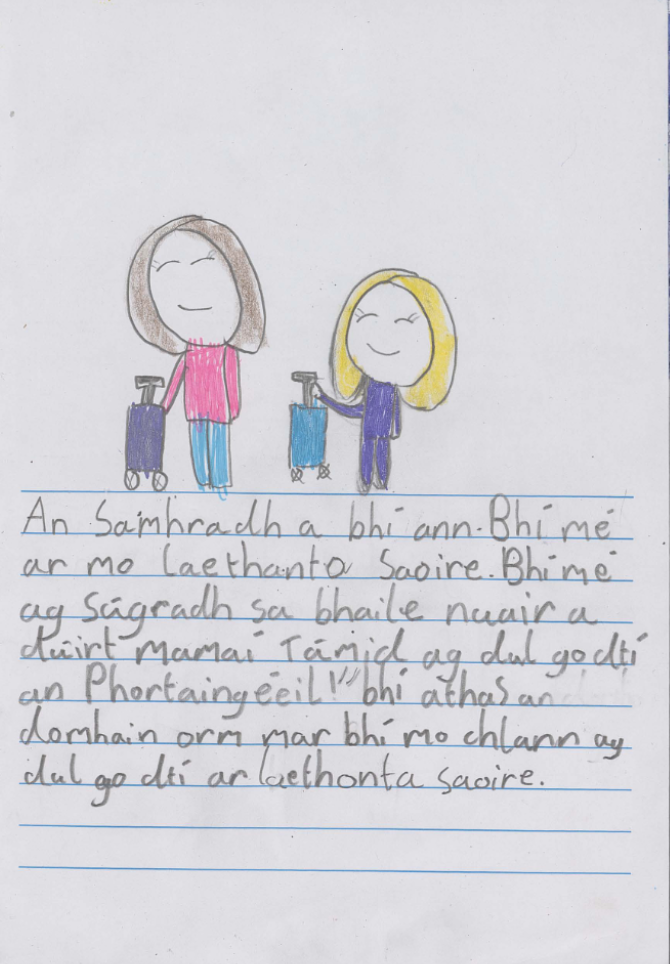 An Samhradh a bhí ann. Bhí mé
ar mo laethanta Saoire. Bhí mé
ag Súgradh sa bhaile nuair a
dúirt mamaí Támid ag dul go dtí
an Phortaingéeil!" bhí áthas an
domhain orm mar bhí mo chlann ag
dul go dtí ar laethonta saoire.